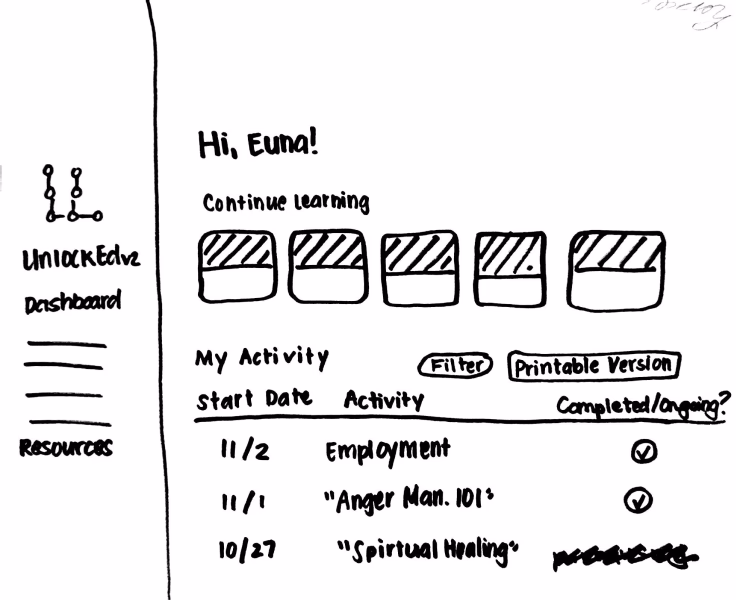 UnlockEdv2
Dashboard
Resources
Hi, Euna!
Continue learning
My Activity
Filter
Printable Version
Start Date Activity Completed/Ongoing?
11/2 Employment
11/1 "Anger Man. 101"
10/27 "Spirtual Healing"